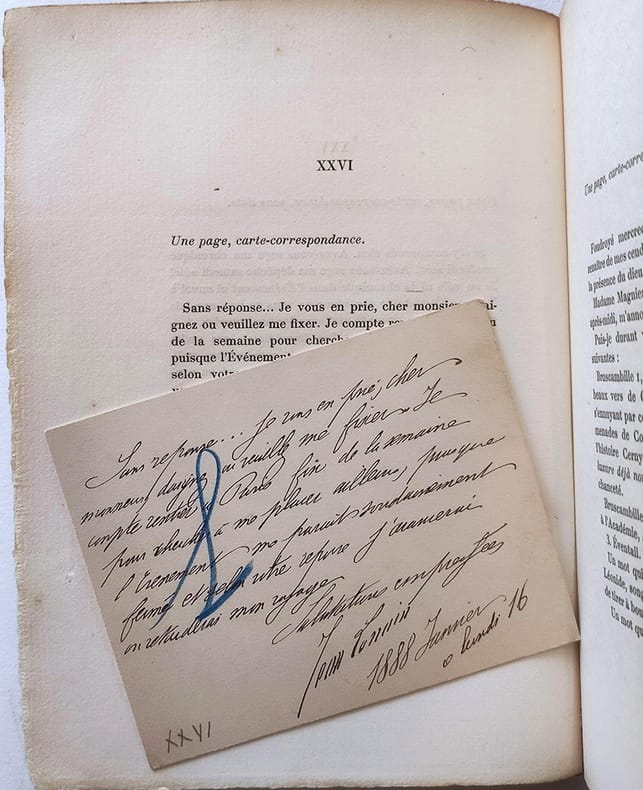 XXVI
Une page, carte-correspondance.
Sans réponse... Je vous en prie, cher monsieur
ignez ou veuillez me fixer. Je compte
de la semaine pour cherch
puisque l'Événement
selon vot
Sans réponse... Je vous en prie, cher
monsieur, daignez ou veuillez me fixer. Je
compte rentrer à Paris fin de la semaine
pour chercher à me placer ailleurs, puisque
l'Evènement me paraît soudainement
fermé et selon votre réponse j'avancerai
ou retarderai mon voyage
Salutations empressées
Jean Lorrain
1888 Janvier
lundi 16
XXVI
Une page, carte-corre
Foudroyé mercre
remettre de mes cend
la présence du dieu
Madame Magnier
après-midi, m'anno
Puis-je durant
suivantes :
Bruscambille 1,
beaux vers de C
s'ennuyant par co
menades de Co
l'histoire Ceruy
luxure déjà no
chanceté.
Bruscambille
à l'Académie,
3. Éventail.
Un mot qui
Léonide, song
de tirer à b
Un mot q